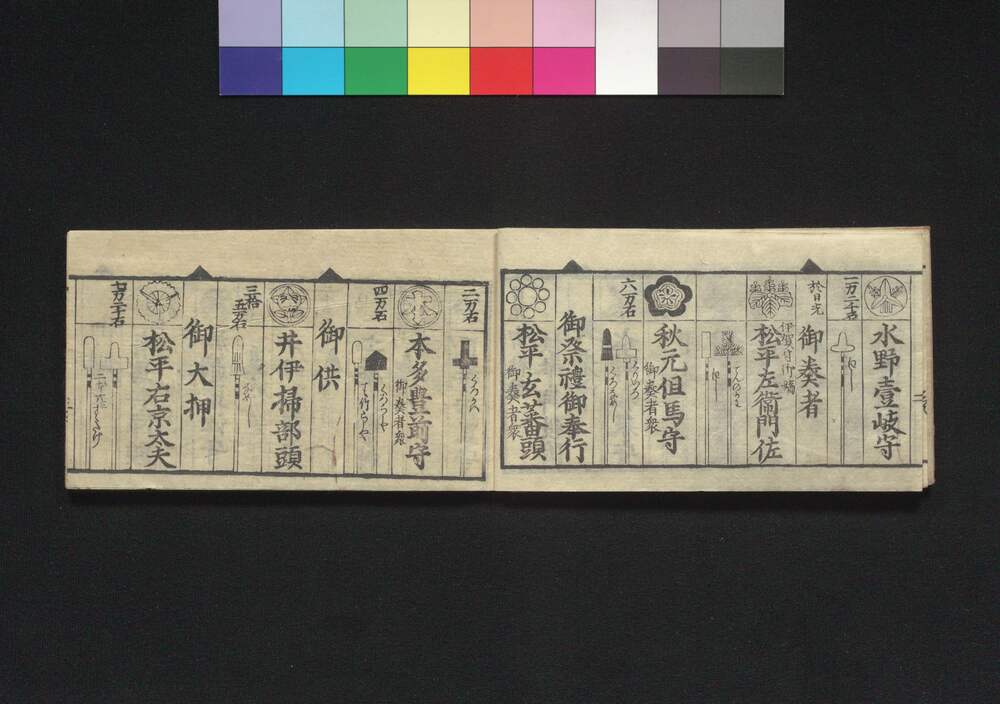 水野壹岐守
一万二千石
御奏者
於日光
松平左衞門佐
伊賀守御嫡
秋元但馬守
御奏者衆
六万石
御祭禮御奉行
松平玄蕃頭
御奏者衆
二万石
本多豊前守
御奏者衆
四万石
御供
井伊掃部頭
三拾五万石
御大押
松平右京太夫
七万二千石